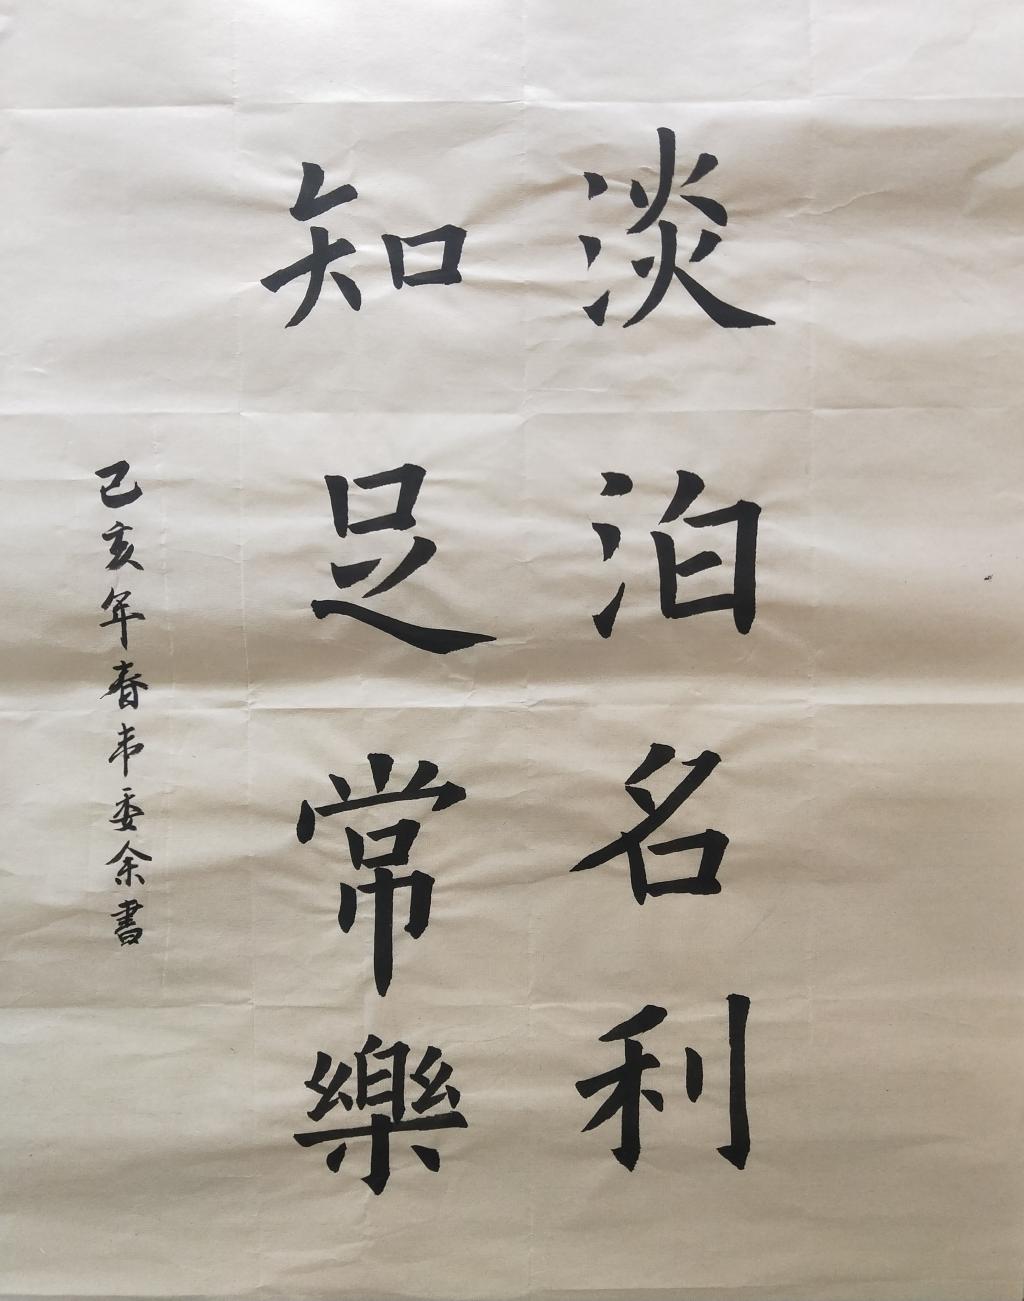 淡泊名利
知足常樂
己亥年春韦委余書